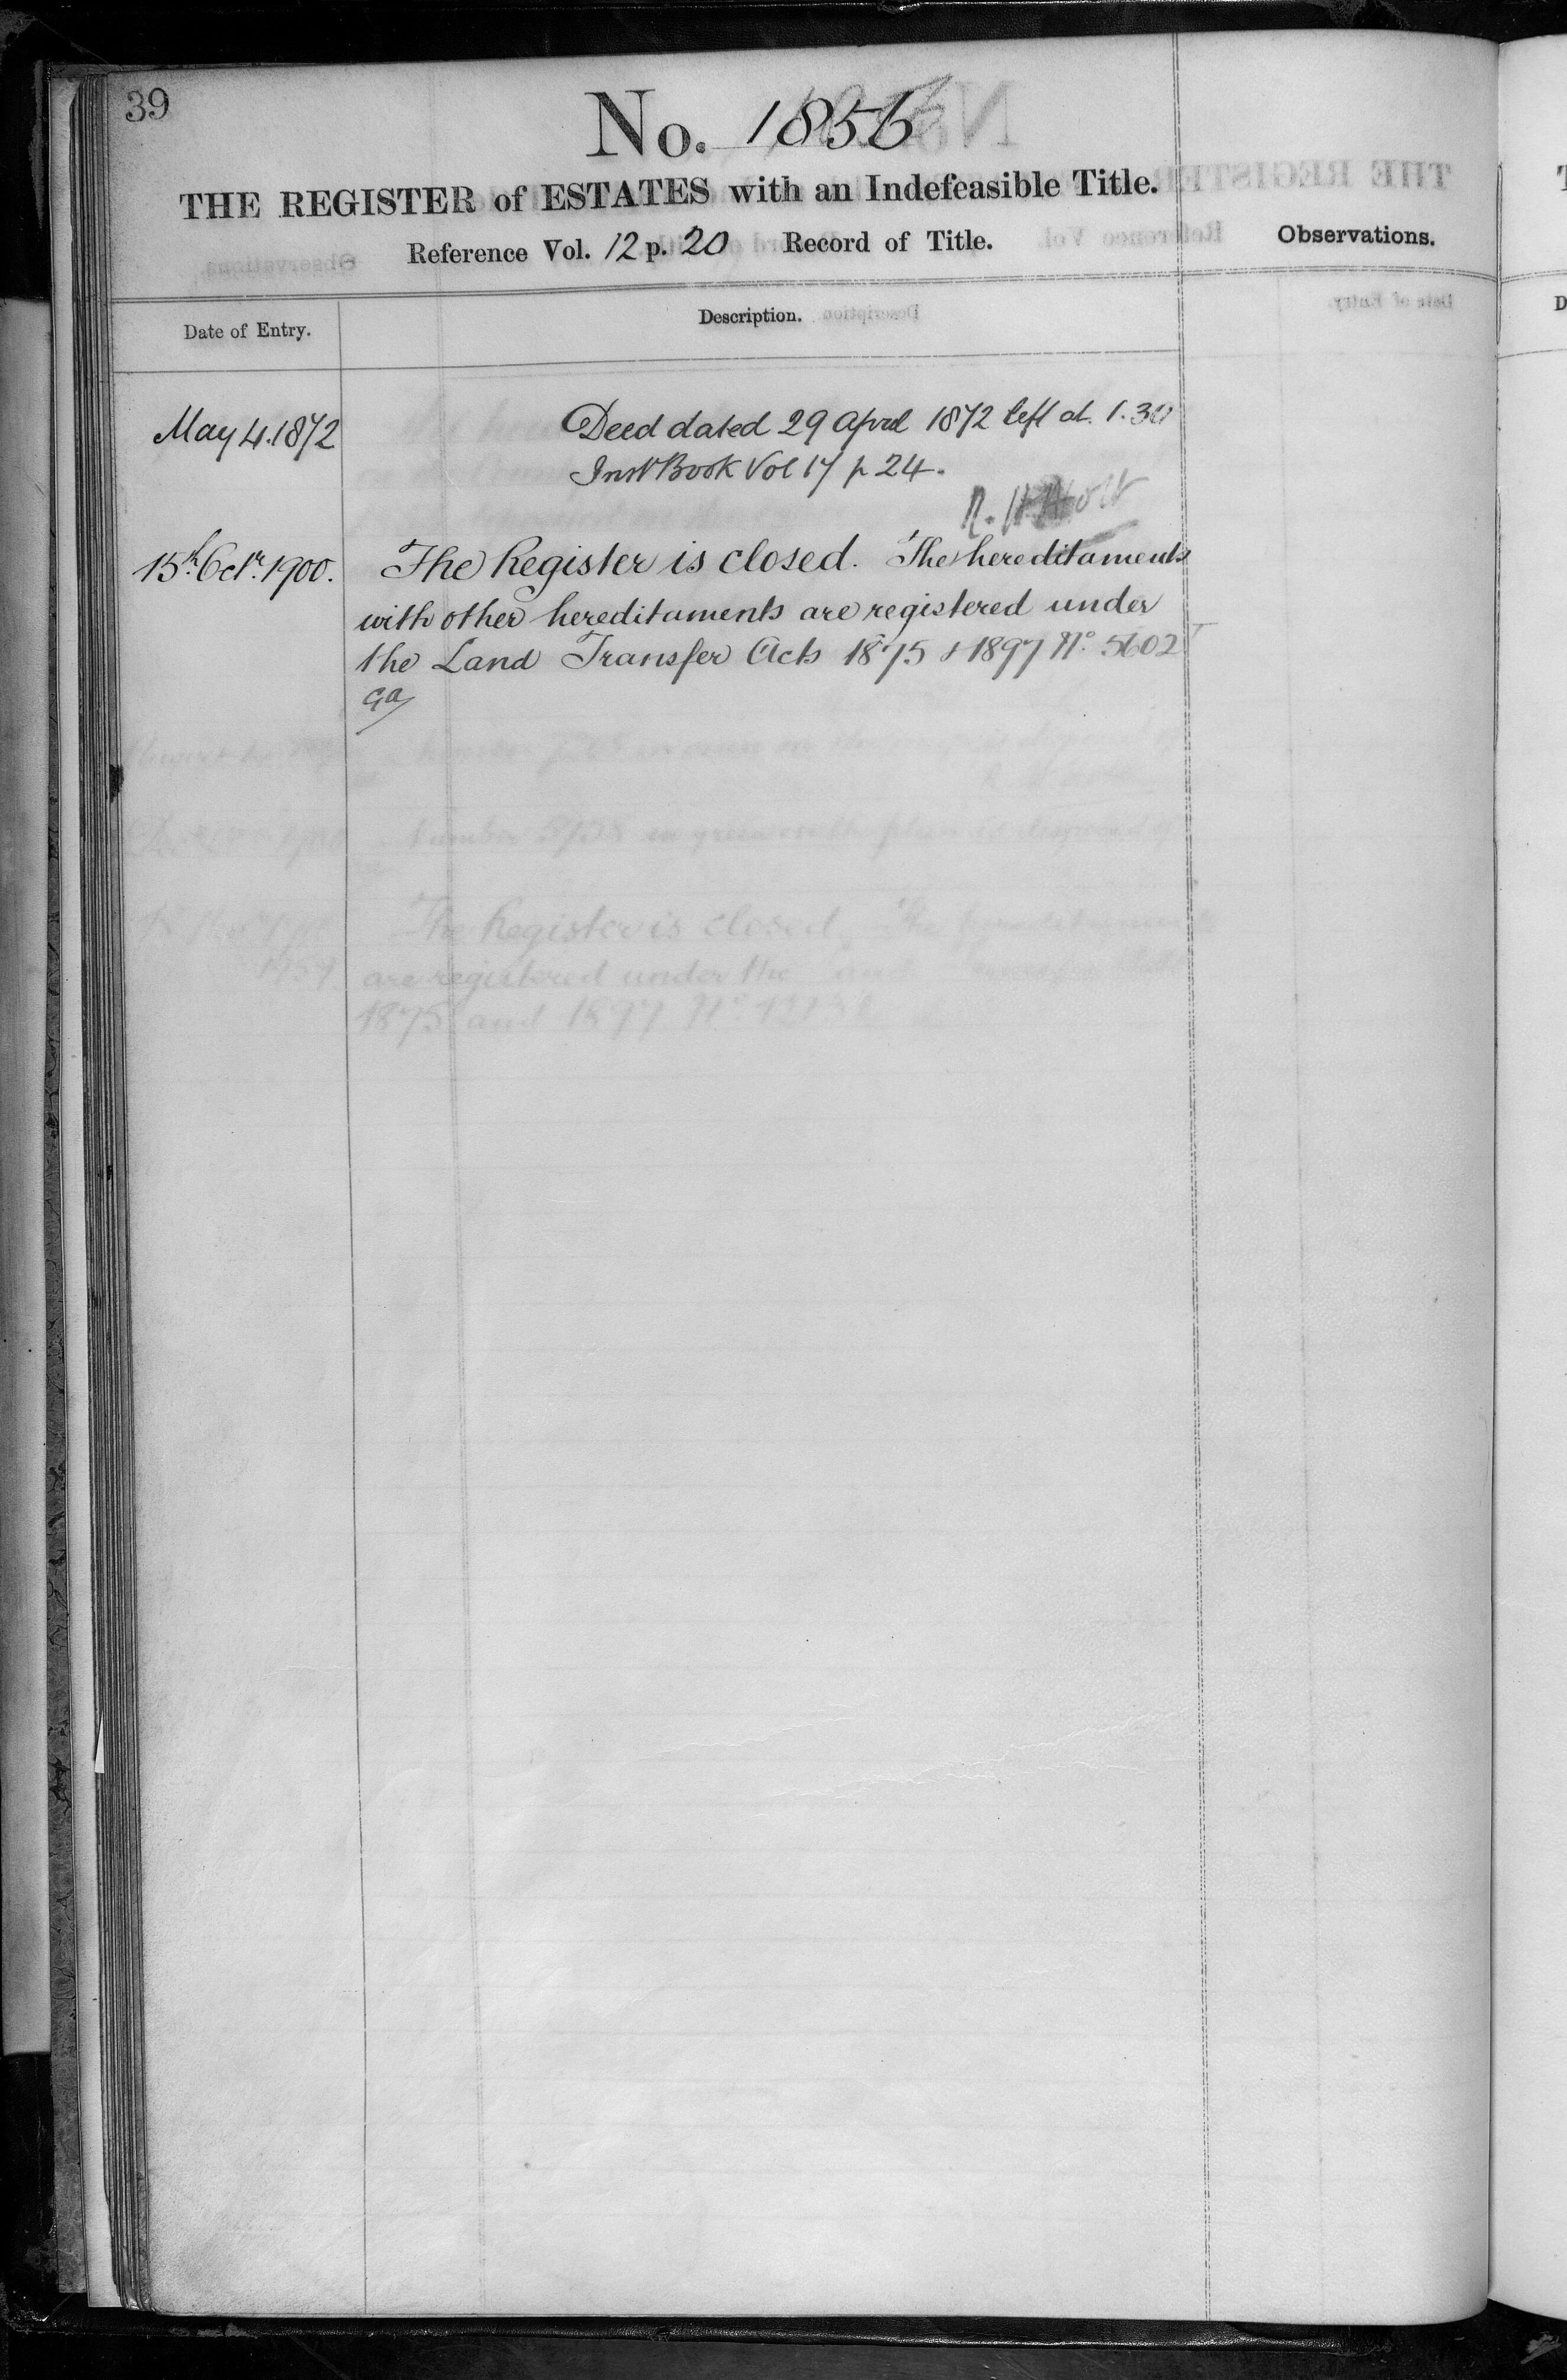 39
No. 1856
THE REGISTER of ESTATES with an Indefeasible Title.
Reference Vol. 12 p. 20 Record of Title.
Observations.
Date of Entry.
Description.
May 4. 1872
Deed dated 29 April 1872 left at 1.30
Inst Book Vol 17 p 24.
R. H Holt
15th Octr. 1900.
The Register is closed. The hereditaments
with other hereditaments are registered under
the Land Transfer Acts 1875 & 1897 No. 5602
The Register is closed. The hereditaments
are registered under the
1875 and 1897 No.